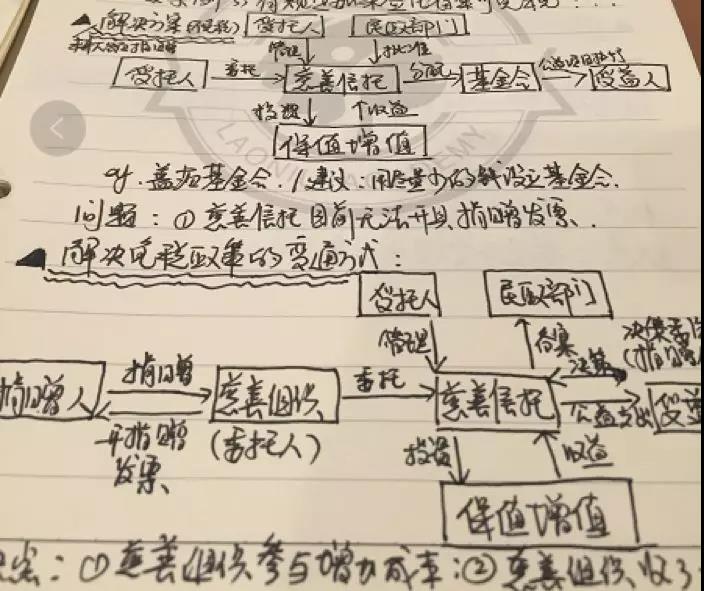 解决方案(免税) 受托人 民政部门
管理 批准
受托人 委托 慈善信托 分配 基金会 公益项目执行 受益人
投资 收益
保值增值
eg. 盖茨基金会. / 建议:用尽量少的钱设立基金会.
问题:① 慈善信托目前无法开具捐赠发票.
解决免税政策的变通方式:
受托人 民政部门
管理 备案 决策
捐赠人 捐赠 慈善组织 委托 慈善信托 公益支出 受益
开捐赠发票 (委托人) 投资 收益
保值增值
① 慈善组织参与增加成本;② 慈善组织收了